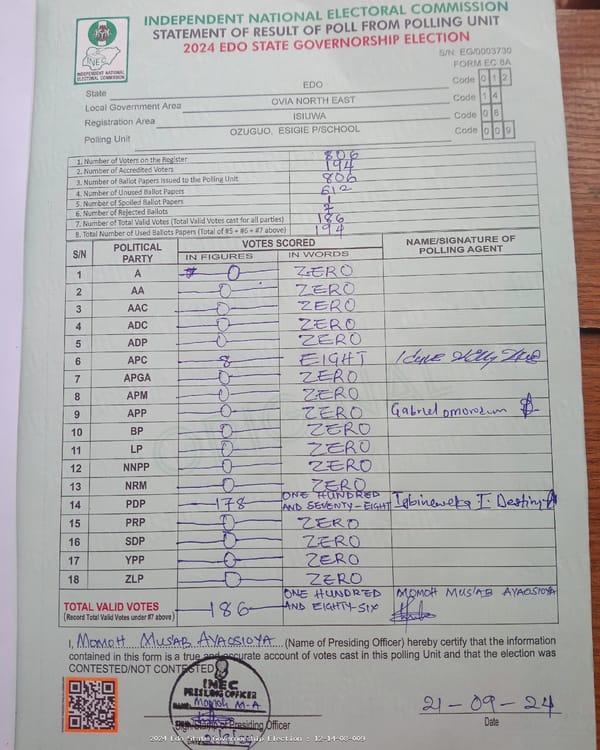 INDEPENDENT NATIONAL ELECTORAL COMMISSION
STATEMENT OF RESULT OF POLL FROM POLLING UNIT
2024 EDO STATE GOVERNORSHIP ELECTION
INEC
INDEPENDENT NATIONAL
ELECTORAL COMMISSION
S/N: EG/0003730
FORM EC 8A
State EDO Code 0 1 2
Local Government Area OVIA NORTH EAST Code 1 4
Registration Area ISIUWA Code 0 8
Polling Unit OZUGUO, ESIGIE P/SCHOOL Code 0 0 9
1. Number of Voters on the Register 806
2. Number of Accredited Voters 194
3. Number of Ballot Papers Issued to the Polling Unit 806
4. Number of Unused Ballot Papers 612
5. Number of Spoiled Ballot Papers 1
6. Number of Rejected Ballots 7
7. Number of Total Valid Votes (Total Valid Votes cast for all parties) 186
8. Total Number of Used Ballots Papers (Total of #5 + #6 + #7 above) 194
S/N POLITICAL PARTY VOTES SCORED NAME/SIGNATURE OF POLLING AGENT
IN FIGURES IN WORDS
1 A 0 ZERO
2 AA 0 ZERO
3 AAC 0 ZERO
4 ADC 0 ZERO
5 ADP 0 ZERO
6 APC 8 EIGHT
7 APGA 0 ZERO
8 APM 0 ZERO
9 APP 0 ZERO Gabriel omorodion
10 BP 0 ZERO
11 LP 0 ZERO
12 NNPP 0 ZERO
13 NRM 0 ZERO
14 PDP 178 ONE HUNDRED AND SEVENTY-EIGHT Igbineweka I. Destiny
15 PRP 0 ZERO
16 SDP 0 ZERO
17 YPP 0 ZERO
18 ZLP 0 ZERO
TOTAL VALID VOTES 186 ONE HUNDRED AND EIGHTY-SIX MOMOH MUS'AB AYAOSIOYA
(Record Total Valid Votes under #7 above)
I, MOMOH MUS'AB AYAOSIOYA (Name of Presiding Officer) hereby certify that the information
contained in this form is a true and accurate account of votes cast in this polling Unit and that the election was
CONTESTED/NOT CONTESTED
INEC
PRESIDING OFFICER
Momoh M-A
Presiding Officer
21-09-24
Date
2024 Edo State Governorship Election : 12-14-08-009